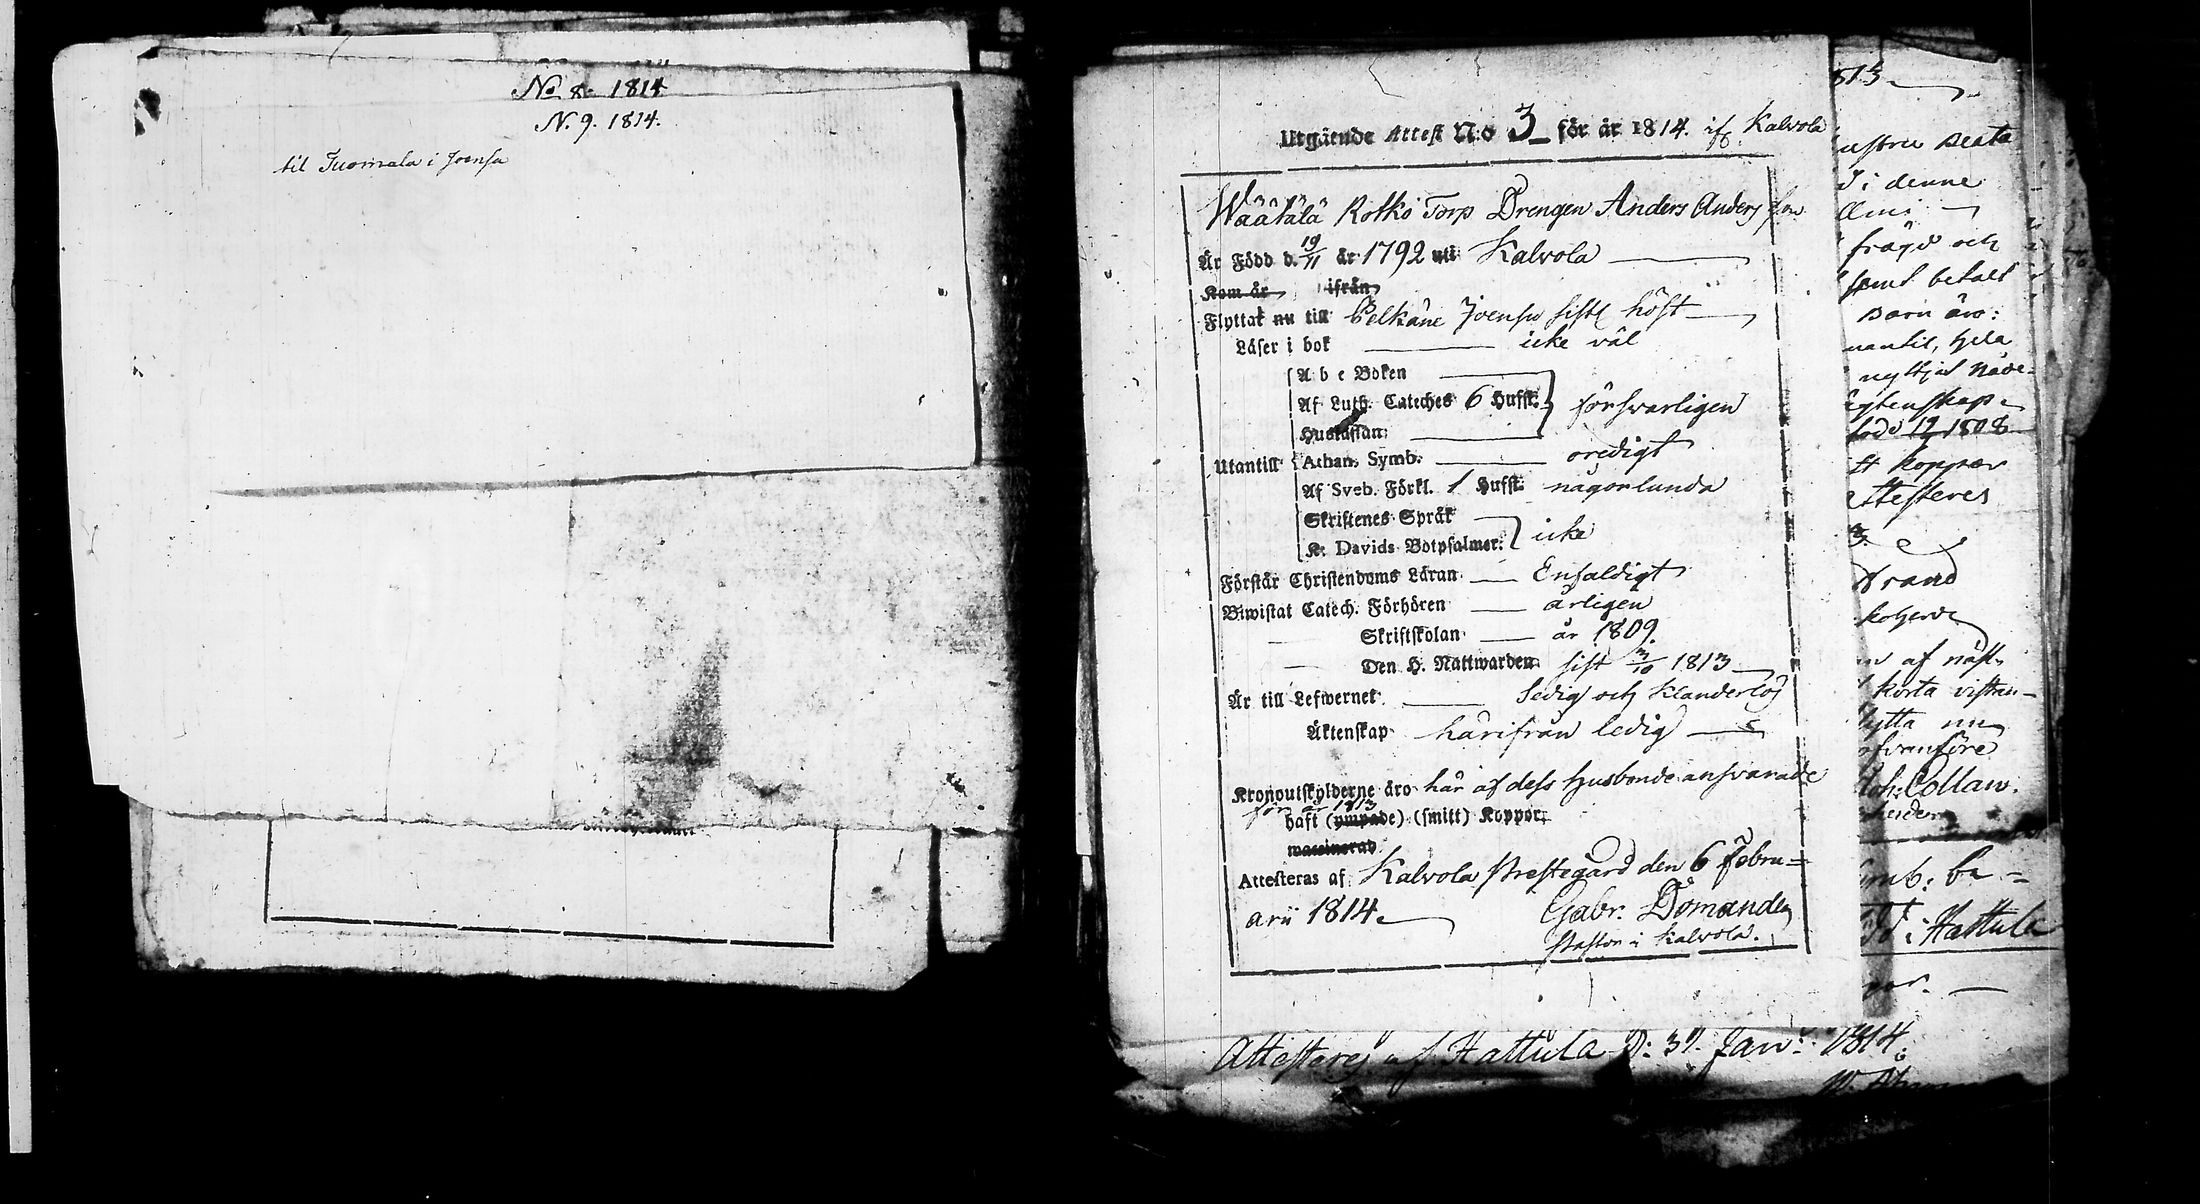 No 8. 1814
N. 9. 1814.
til Tuomala i Joensu
Utgående Attest N:o 3 för år 1814. if. Kalvola
Wäätälä Rotko Torp Drengen Anders Andersson
Är Född d. 19/11 år 1792 uti Kalvola
Kom år ifrån
Flyttat nu till Pelkäne Joensu sistl höst
Läser i bok icke väl
A b c Boken
Af Luth. Cateches 6 Hufst. försvarligen
Hustaflan
Utantill Athan. Symb. oredigt
Af Sveb. Förkl. 1 Hufst. någorlunda
Skriftenes Språk
K. Davids Botpsalmer. icke
Förstår Christendoms Läran Enfaldigt
Biwistat Catech. Förhören årligen
Skriftskolan år 1809.
Den H. Nattwarden sist 3/10 1813
Är till Lefwernet sedig och klanderlös
Äktenskap härifrån ledig
Kronoutskylderne äro här af dess husbonde ansvarade
för år 1813
haft (ympade) (smitt) Koppor.
waccinerad
Attesteras af Kalvola Prestegård den 6 Febru=
arii 1814.
Gabr. Domander
Pastor i Kalvola.
813
Beata
i denne
frägd och
samt betalt
Barn äro:
nantil, hela
nyttjat Nåde-
egtenskap
född 19 1808
koppor
attesteres
Strand
af näst-
korta vistan-
flytta nu
Joh: Collan.
Symb: be-
i Hattula
Attesteres af Hattula D: 31. Jan: 1814.